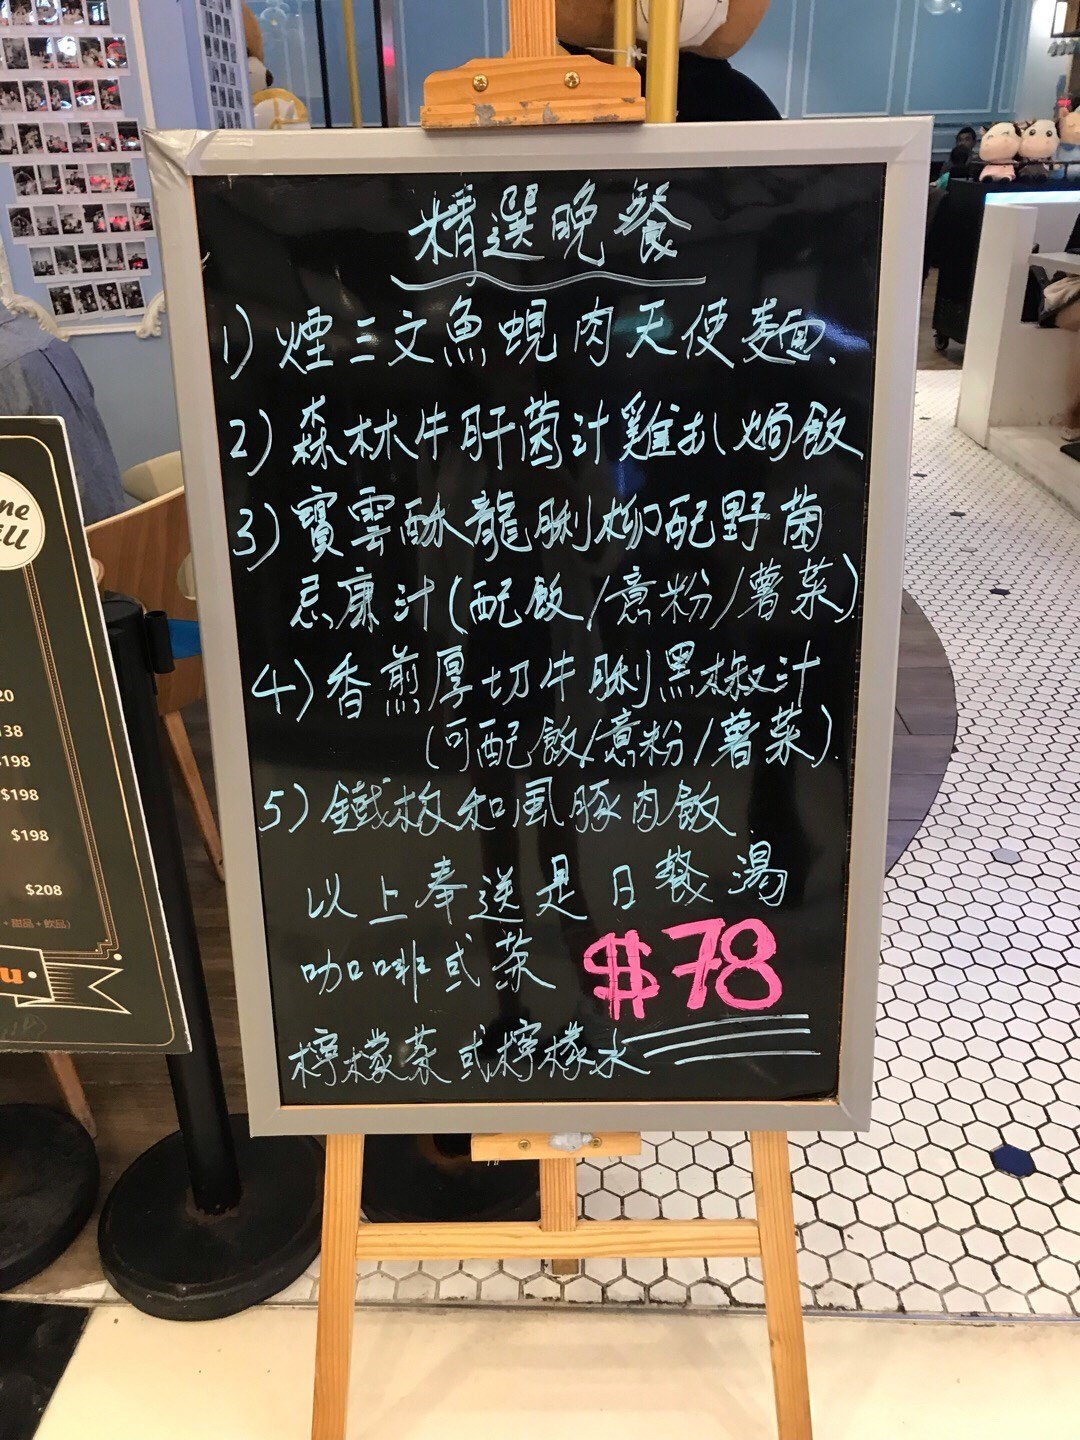 精選晚餐
1) 煙三文魚蜆肉天使麵.
2) 森林牛肝菌汁雞扒焗飯
3) 寶雲酥龍脷柳配野菌
忌廉汁(配飯/意粉/薯菜).
4) 香煎厚切牛脷黑椒汁
(可配飯/意粉/薯菜).
5) 鐵板和風豚肉飯
以上奉送是日餐湯
咖啡或茶 $78
檸檬茶或檸檬水
ne
ill
20
138
$198
$198
$198
$208
+ 甜品 + 飲品)
u